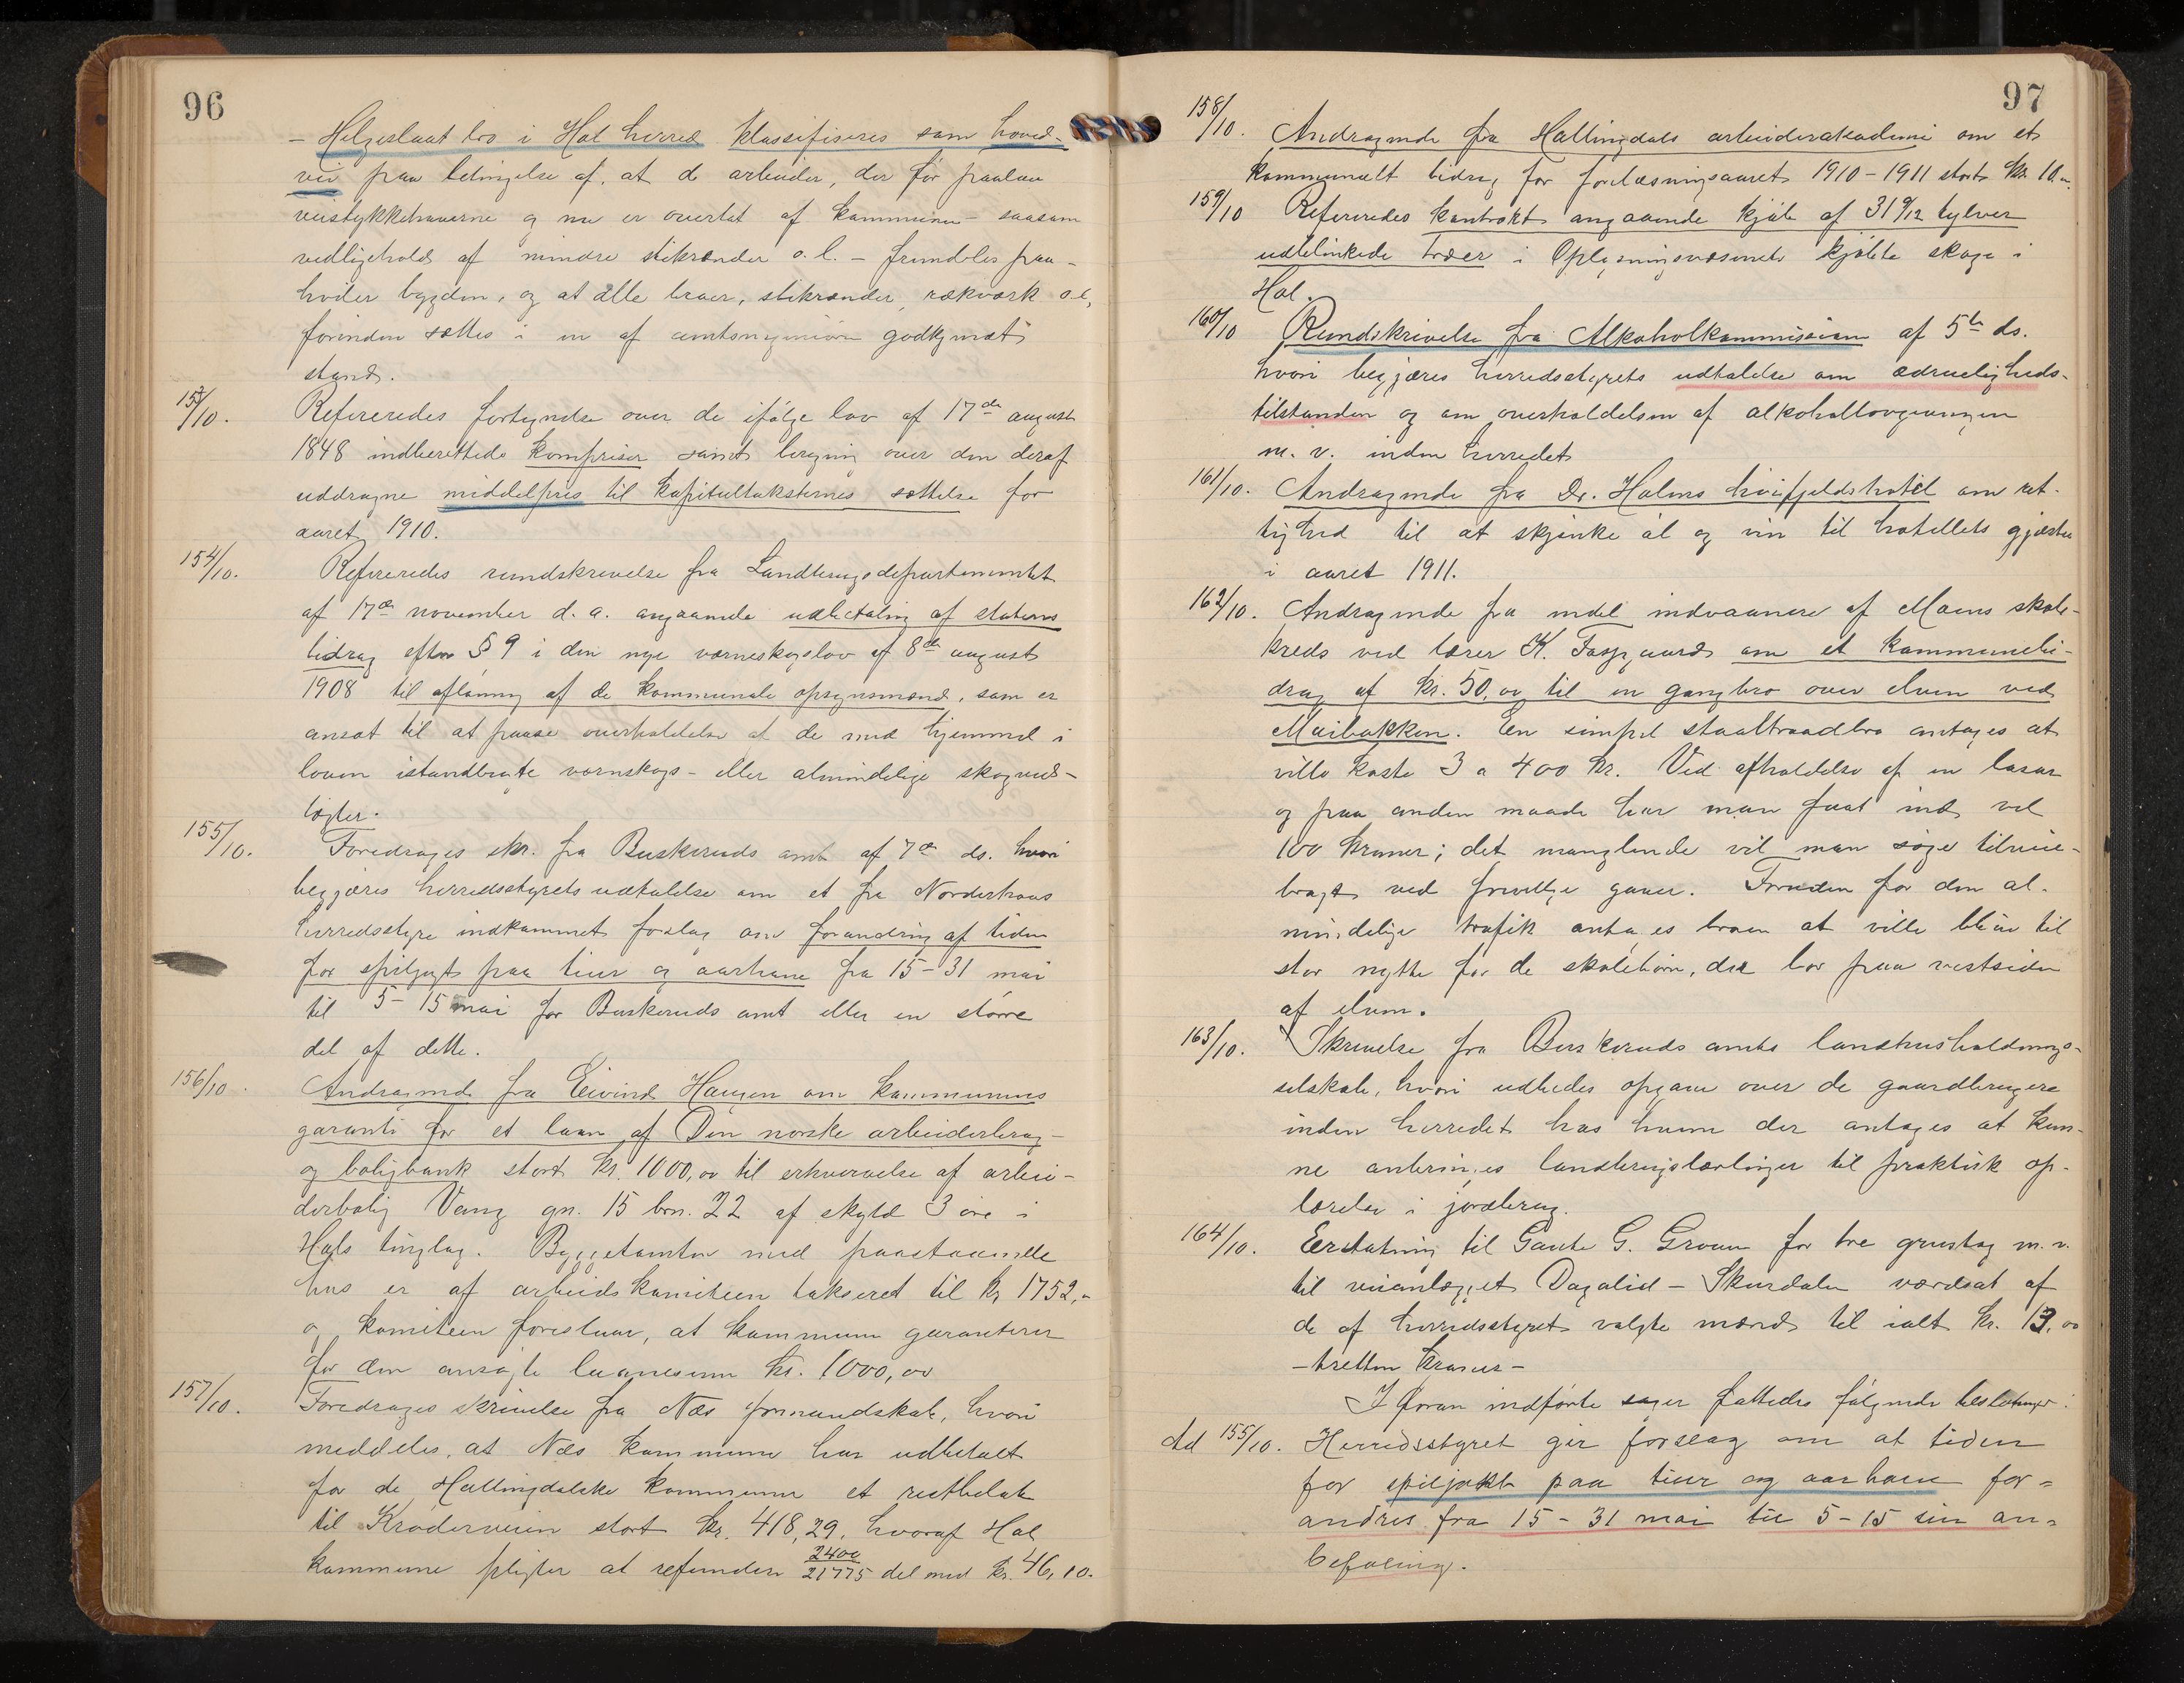 96
- Helgeslaat bro i Hol herred klassifiseres som hoved-
vei paa betingelse af, at de arbeider, der før paalaa
veistykkehaverne og nu er overtat af kommunen - saasom
vedligehold af mindre stikrender o. l. - fremdeles paa-
hviler bygden, og at alle broer, stikrender, rækværk o.l.
forinden sættes i en af amtsingeniøren godkjendt
stand.
153/10. Refereredes fortegnelse over de ifølge lov af 17de august
1848 indberettede kornpriser samt beregning over den deraf
uddragne middelpris til kapitelstaksternes sættelse for
aaret 1910.
154/10. Refereredes rundskrivelse fra Landbrugsdepartementet
af 17de november d. a. angaaende udbetaling af statens
bidrag efter § 9 i den nye værneskogslov af 8de august
1908 til aflønning af de kommunale opsynsmænd, som er
ansat til at paase overholdelse af de med hjemmel i
loven istandbragte vernskogs- eller almindelige skogved-
tægter.
155/10. Foredrages skr. fra Buskeruds amt af 7de ds. hvori
begjæres herredsstyrets udtalelse om et fra Norderhovs
herredsstyre indkommet forslag om forandring af tiden
for spiljagt paa tiur og aarhane fra 15-31 mai
til 5-15 mai for Buskeruds amt eller en større
del af dette.
156/10. Andragende fra Eivind Haugen om kommunens
garanti for et laan af Den norske arbeiderbrug-
og boligbank stort kr. 1000,00 til erhvervelse af arbei-
derbolig Vang gn. 15 brn. 22 af skyld 3 øre i
Hols tinglag. Byggetomten med paastaaende
hus er af arbeidskomiteen takseret til kr 1752,-
og komiteen foreslaar, at kommunen garanterer
for den ansøgte laanesum kr. 1000,00
157/10. Foredrages skrivelse fra Næs formandskab, hvori
meddeles, at Næs kommune har udbetalt
for de Hallingdalske kommuner et restbeløb
til Krøderveien stort kr. 418,29, hvoraf Hol
kommune pligter at refundere 2400/21775 del med kr. 46,10.
97
158/10. Andragende fra Hallingdals arbeiderakademi om et
kommunalt bidrag for forelæsningsaaret 1910-1911 stort kr. 10.
159/10 Refereredes kontrakt angaaende kjøb af 31 9/12 tylver
udblinkede træer i Oplysningsvæsenets kjøbte skoge i
Hol.
160/10 Rundskrivelse fra Alkoholkommissionen af 5te ds.
hvori begjæres herredsstyrets udtalelse om ædrueligheds-
tilstanden og om overholdelsen af alkohollovgivningen
m. v. inden herredet
161/10. Andragende fra Dr. Holms høifjeldshotel om ret-
tighed til at skjenke øl og vin til hotellets gjæster
i aaret 1911.
162/10. Andragende fra endel indvaanere af Moens skole-
kreds ved lærer K. Faspaard om et kommunebi-
drag af kr. 50,00 til en gangbro over elven ved
Maibakken. En simpel staaltraadbro antages at
ville koste 3 a 400 kr. Ved afholdelse af en basar
og paa anden maade har man faat ind vel
100 kroner; det manglende vil man søge tilveie-
bragt ved frivillige gaver. Foruden for den al-
mindelige trafik antages broen at ville blive til
stor nytte for de skolebørn, der bor paa vestsiden
af elven.
163/10. Skrivelse fra Buskeruds amts landhusholdnings-
selskab, hvori udbedes opgave over de gaardbrugere
inden herredet hos hvem der antages at kun-
ne anbringes landbrugslærlinger til praktisk op-
lærelse i jordbrug.
164/10. Erstatning til Gaute G. Groven for tre grustag m. v.
til veianlægget Dagalid - Skurdalen værdsat af
de af herredsstyret valgte mænd til ialt kr. 13,00
- tretten kroner -
I foran indførte sager fattedes følgende beslutninger:
Ad 155/10. Herredsstyret gir forslag om at tiden
for spiljakt paa tiur og aarhane for=
andres fra 15 - 31 mai til 5 - 15 sin an=
befaling.